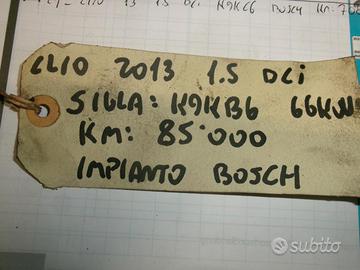 CLIO 13 1.5 DCI K9KC6 BOSCH KM:
CLIO 2013 1.5 DCi
SIGLA: K9KB6 66KW
KM: 85'000
IMPIANTO BOSCH
subito